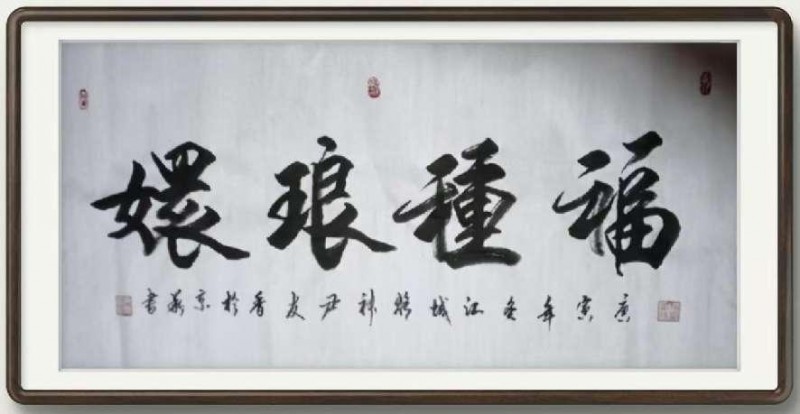 福種琅嬛
庚寅年冬江城 友香於京華書